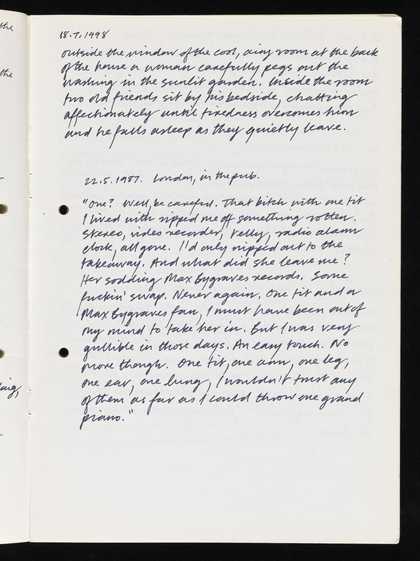 the
the
aig,
18.7.1998
outside the window of the cool, airy room at the back
of the house a woman carefully pegs out the
washing in the sunlit garden. Inside the room
two old friends sit by his bedside, chatting
affectionately until tiredness overcomes him
and he falls asleep as they quietly leave.
22.5.1987. London, in the pub.
"One? Well, be careful. That bitch with one tit
I lived with ripped me off something rotten.
Stereo, video recorder, telly, radio alarm
clock, all gone. I'd only nipped out to the
takeaway. And what did she leave me?
Her sodding Max Bygraves records. Some
fuckin' swap. Never again. One tit and a
Max Bygraves fan, I must have been out of
my mind to take her in. But I was very
gullible in those days. An easy touch. No
more though. One tit, one arm, one leg,
one ear, one lung, I wouldn't trust any
of them as far as I could throw one grand
piano."